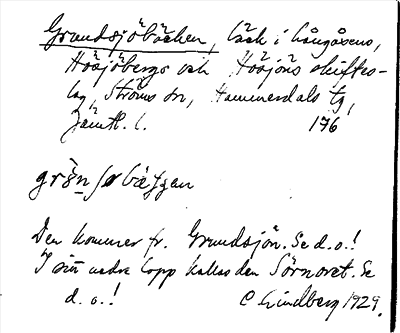 Grundsjöbäcken, bäck i Långåsens,
Hösjöbergs och Hösjöns skiftes-
lag, Ströms sn, Hammerdals tg,
Jämtl. l. 176
Den kommer fr. Grundsjön. Se d. o.!
I sitt nedre lopp kallas den Sörnoret. Se
d. o.! C. Lindberg 1929.